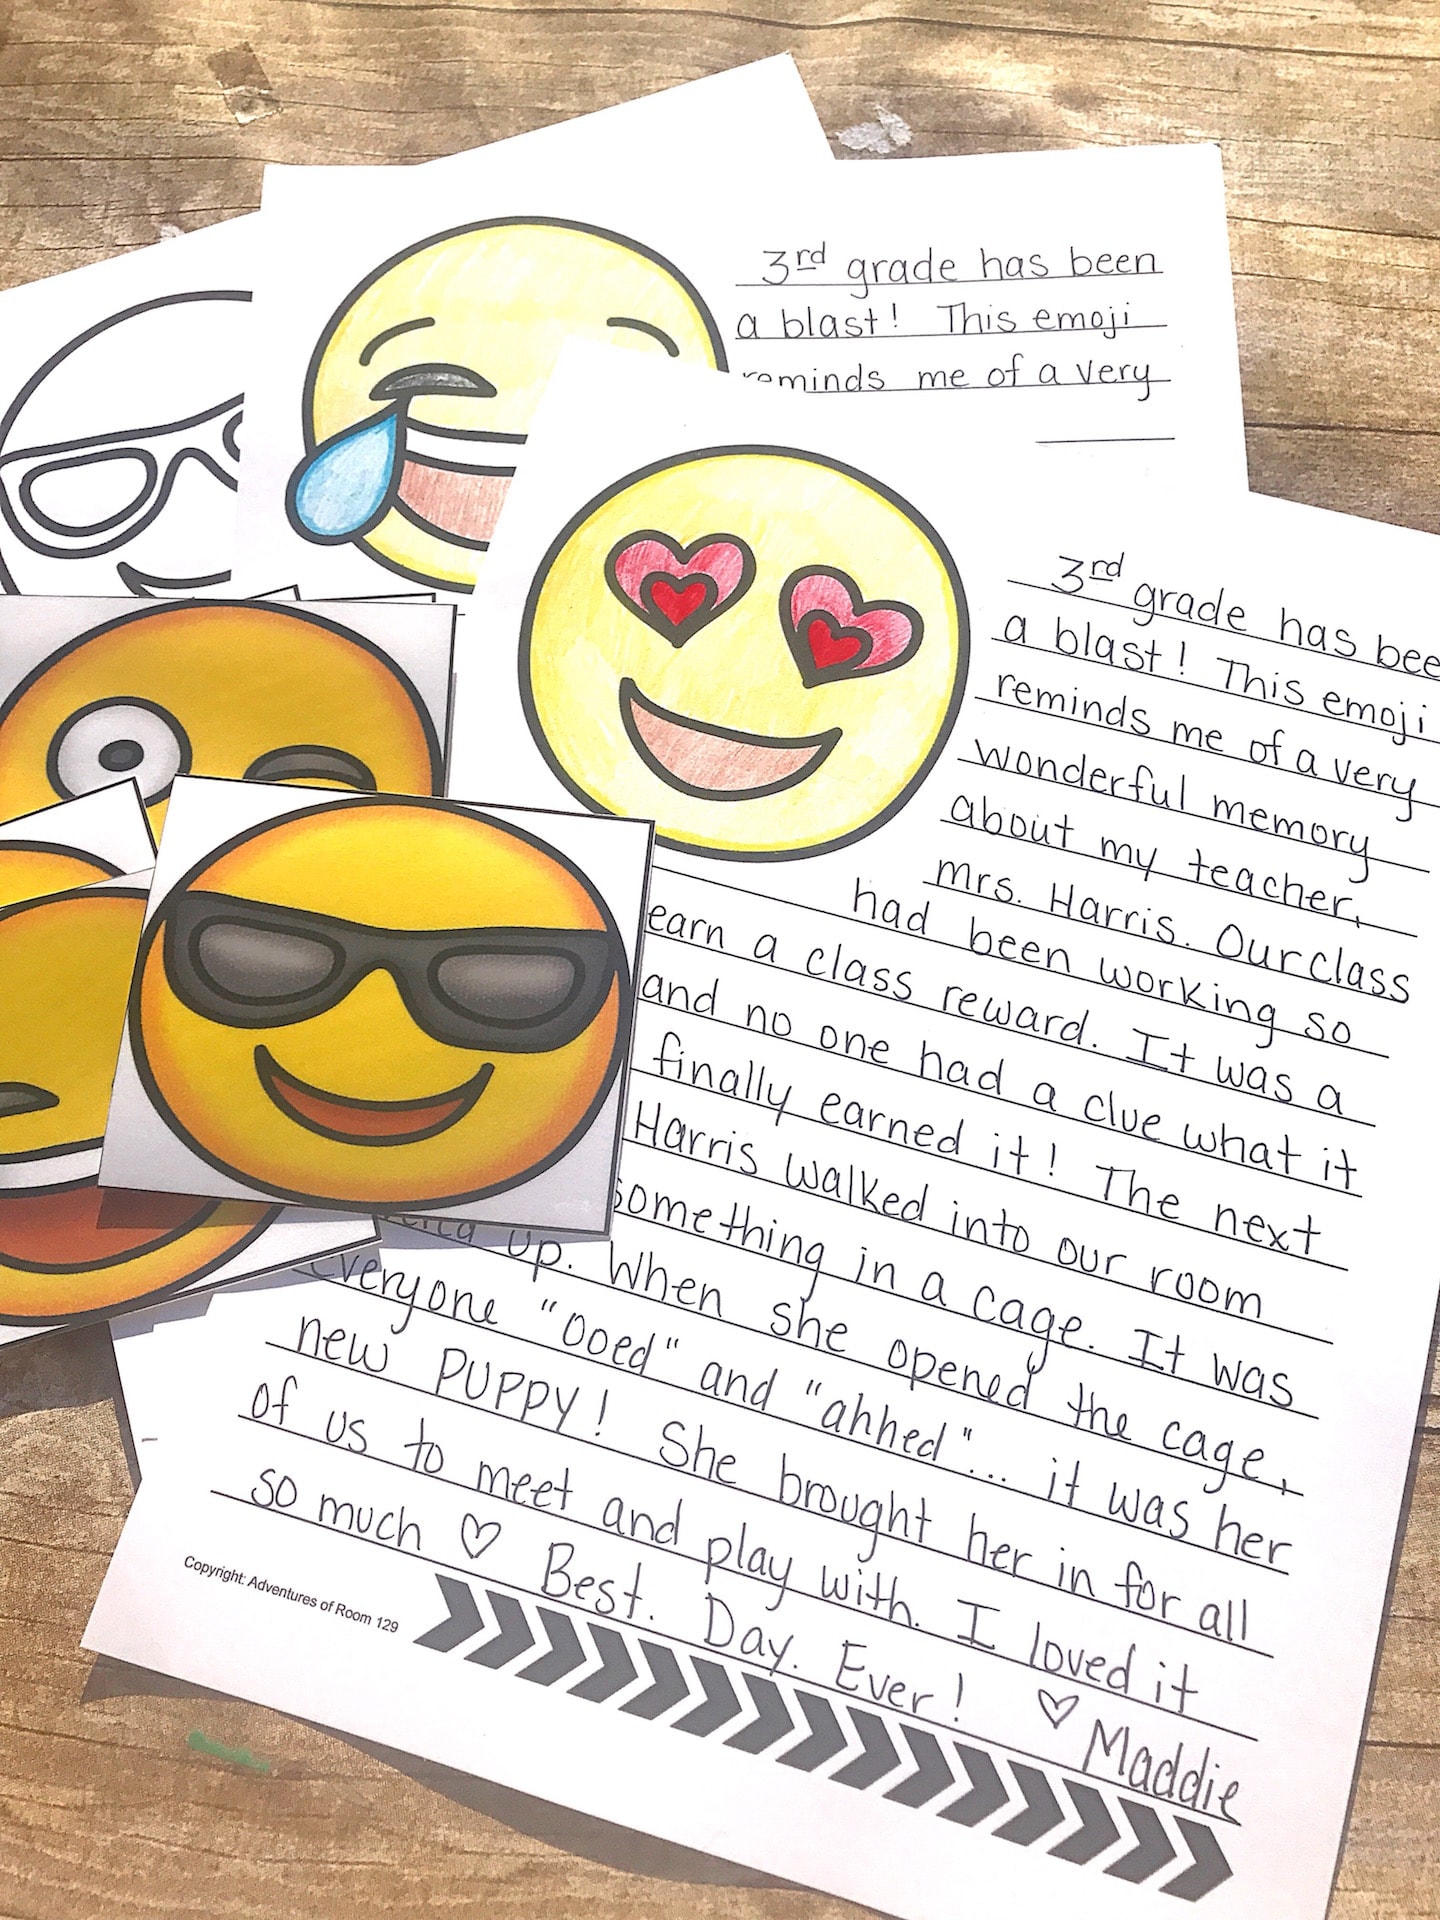 3rd grade has been
a blast! This emoji
reminds me of a very
3rd grade has bee
a blast! This emoji
reminds me of a very
wonderful memory
about my teacher,
mrs. Harris. Our class
had been working so
earn a class reward. It was a
and no one had a clue what it
finally earned it! The next
Harris walked into our room
something in a cage. It was
up. When she opened the cage,
everyone "ooed" and "ahhed"... it was her
new PUPPY! She brought her in for all
of us to meet and play with. I loved it
so much ♡ Best. Day. Ever! ♡ Maddie
Copyright: Adventures of Room 129